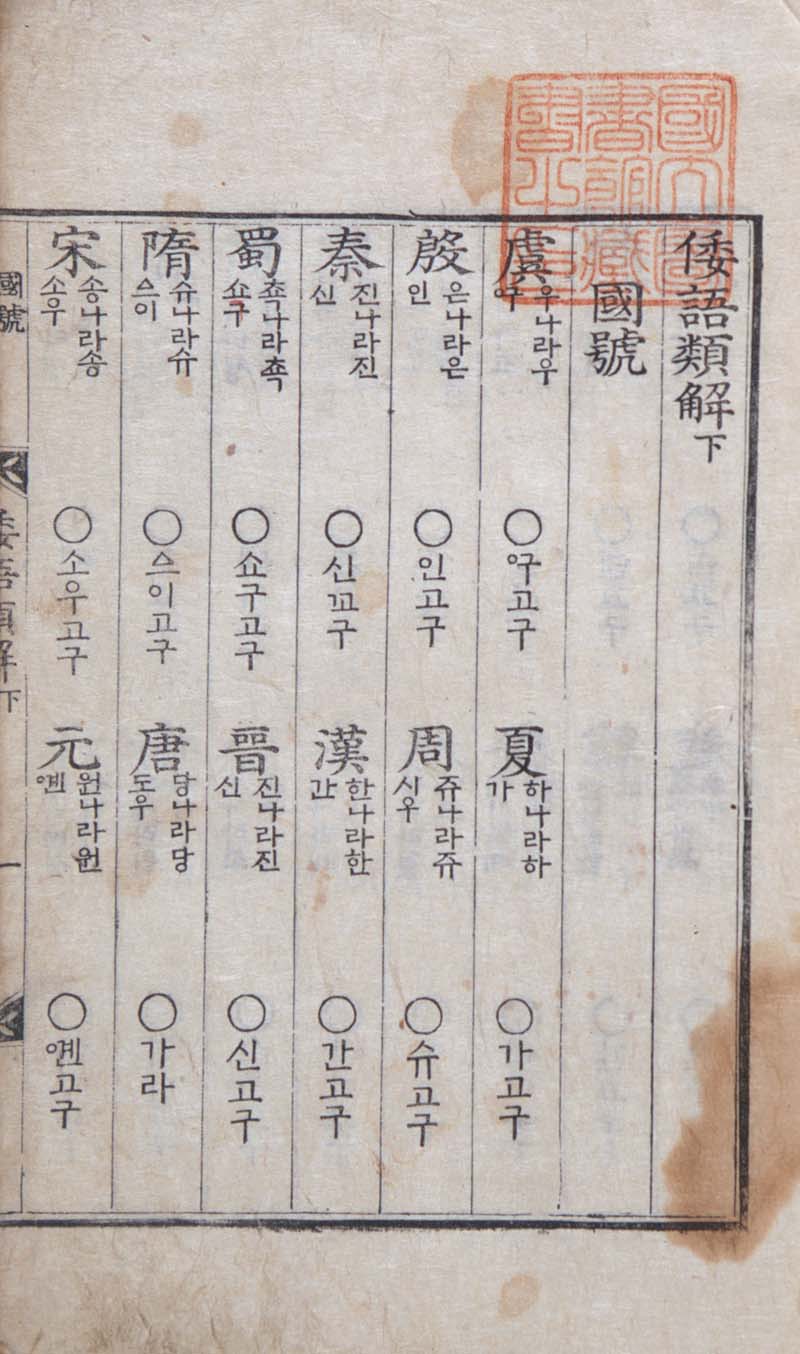 倭語類解 下
國號
虞 우나라우 ᅌᅮ구 ○ ᅌᅮ고구
夏 하나라하 가 ○ 가고구
殷 은나라은 인 ○ 인고구
周 쥬나라쥬 시우 ○ 슈고구
秦 진나라진 신 ○ 신꼬구
漢 한나라한 간 ○ 간고구
蜀 쵹나라쵹 쇼구 ○ 쇼구고구
晉 진나라진 신 ○ 신고구
隋 슈나라슈 스이 ○ 스이고구
唐 당나라당 도우 ○ 가라
宋 송나라송 소우 ○ 소우고구
元 원나라원 ᅌᅨᆫ ○ ᅌᅨᆫ고구
國號
倭語類解 下
一